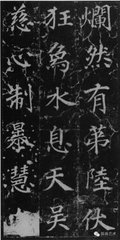 爛然有第陸伏
狂象水息天吴
慈心制暴慧